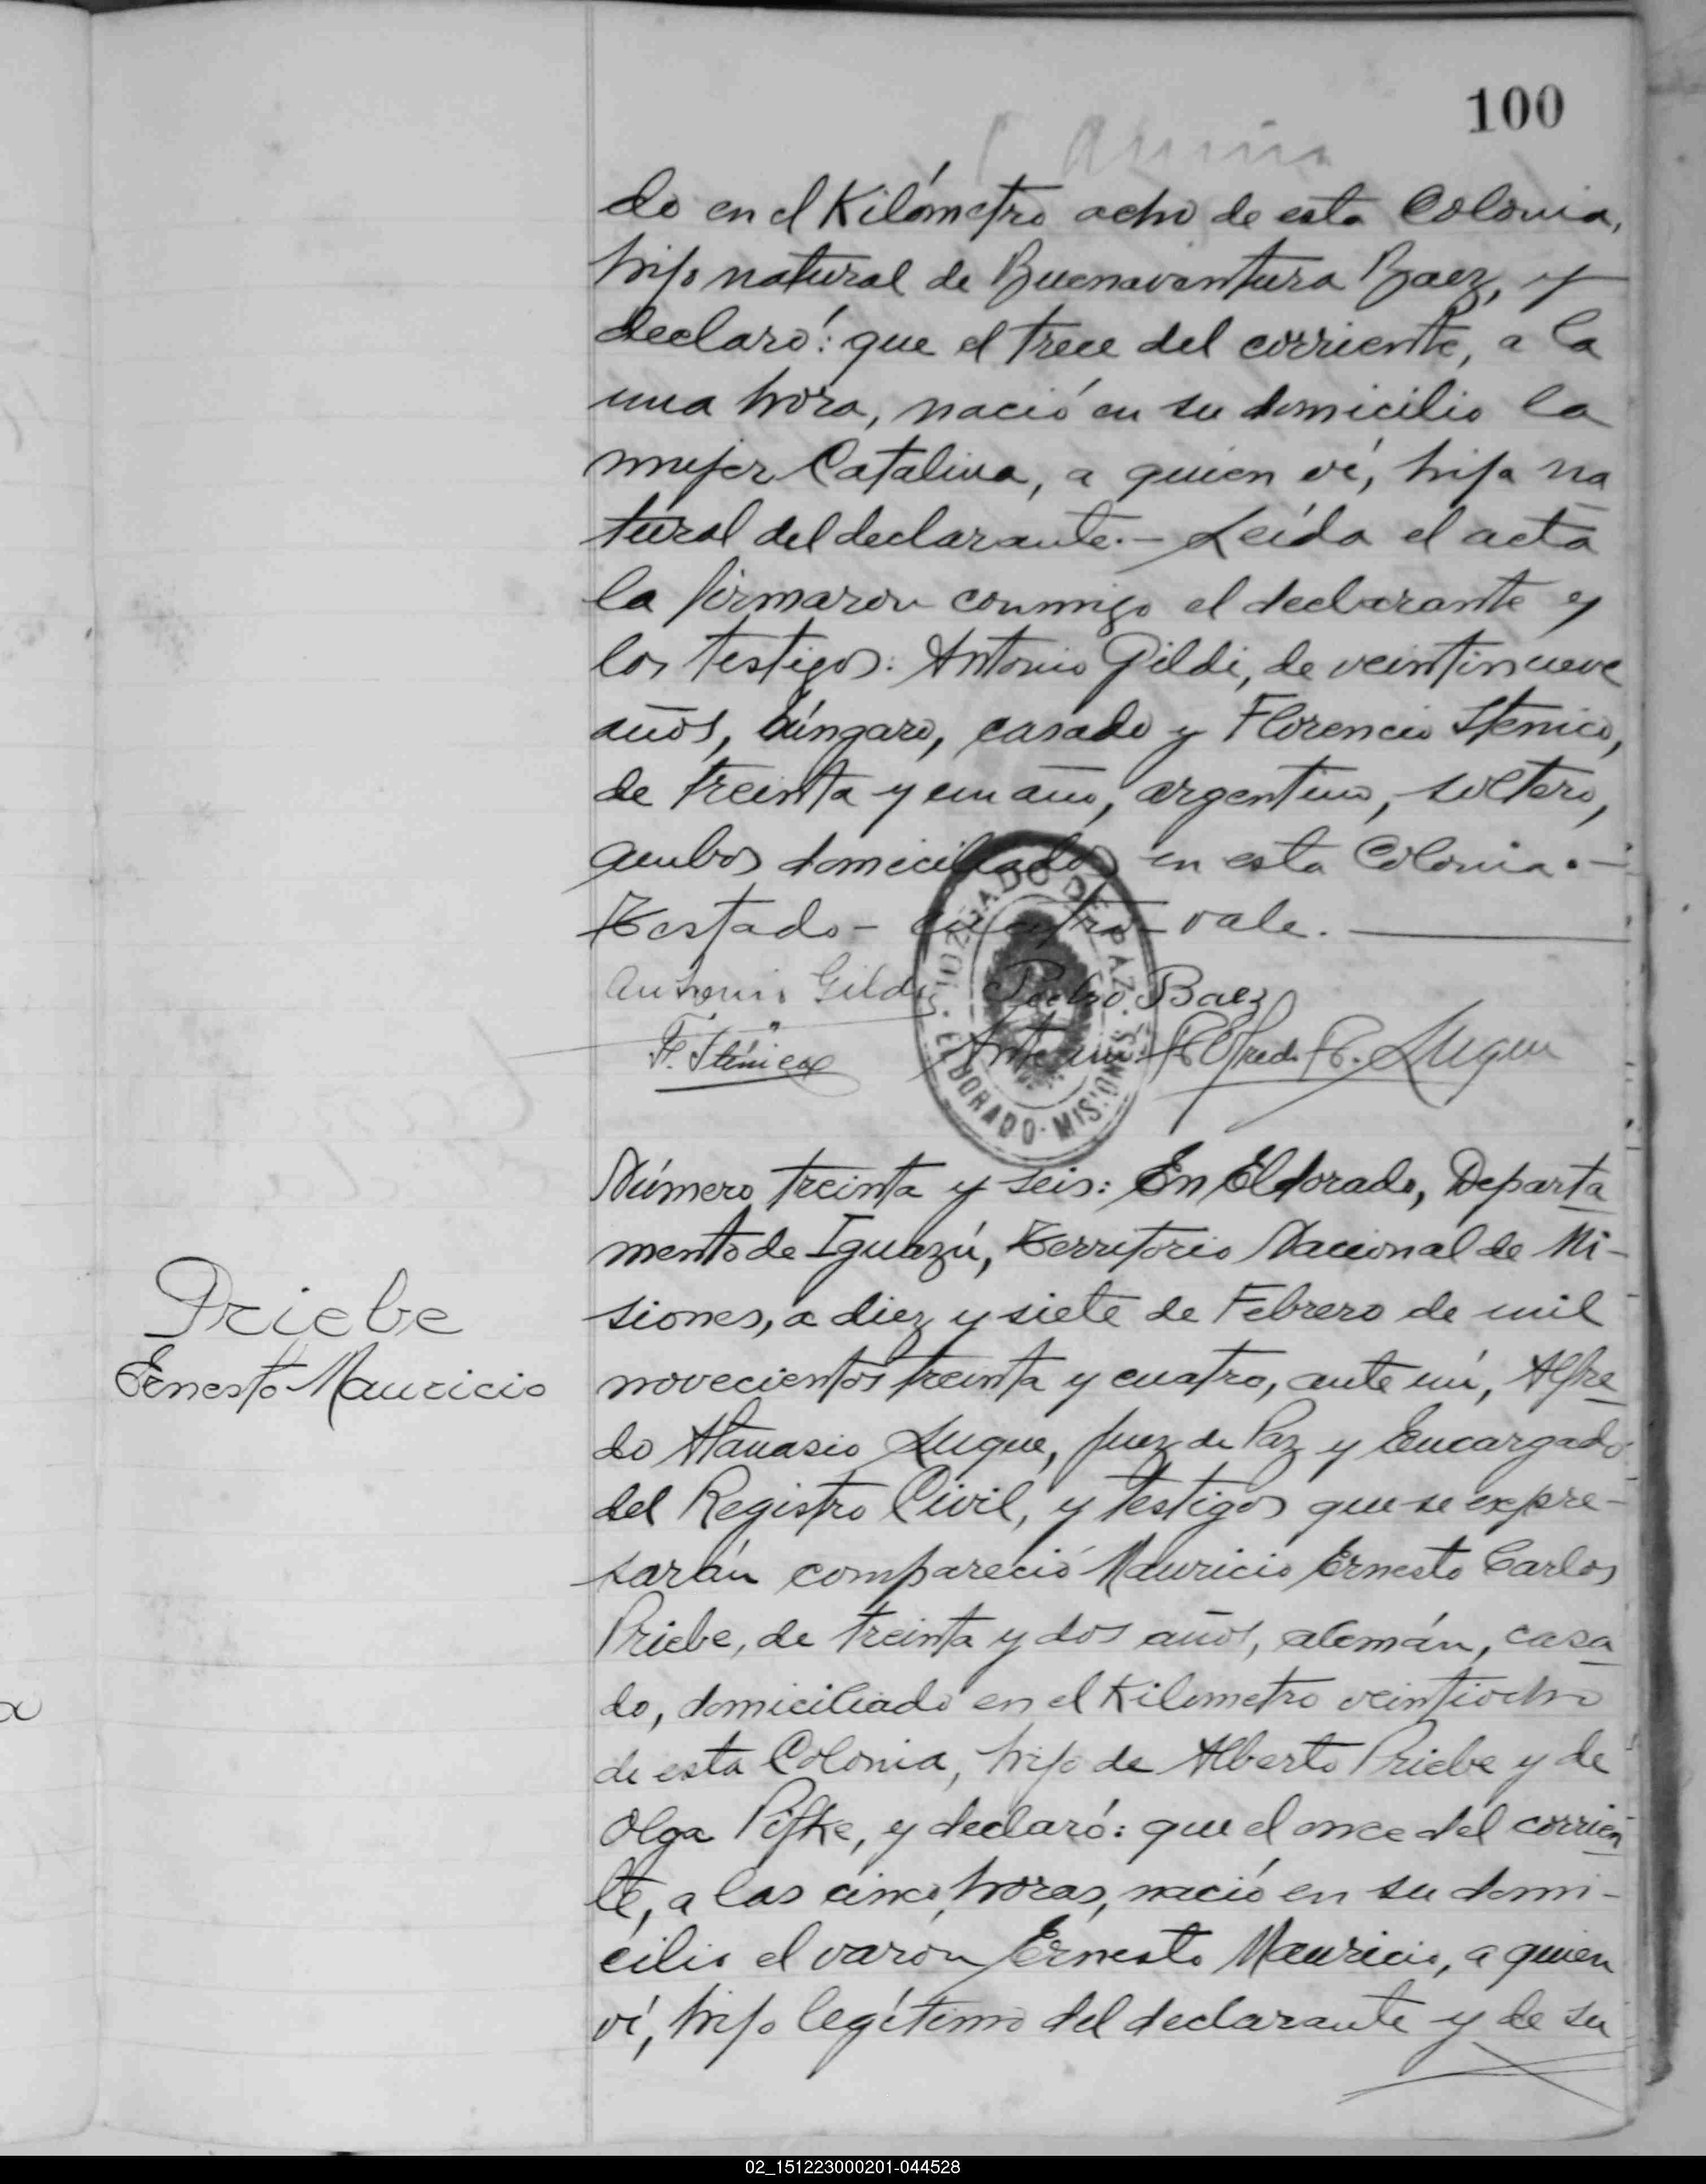 100
do en el Kilómetro ocho de esta Colonia,
hijo natural de Buenaventura Baez, y
declaró: que el trece del corriente, a la
una hora, nació en su domicilio la
mujer Catalina, a quien ví, hija na
tural del declarante.- Leída el acta
la firmaron conmigo el declarante y
los testigos: Antonio Gildi, de veintinueve
años, húngaro, casado y Florencio Stenico,
de treinta y un año, argentino, soltero,
ambos domiciliados en esta Colonia.-
Testado - cuatro - vale.
Antonio Gildi Pedro Baez
F. Sténico Ante mi: Alfredo A. Luque
JUZGADO DE PAZ · ELDORADO · MISIONES ·
Número treinta y seis: En Eldorado, Departa
mento de Iguazú, Territorio Nacional de Mi-
siones, a diez y siete de Febrero de mil
Priebe
Ernesto Mauricio
novecientos treinta y cuatro, ante mí, Alfre
do Atanasio Luque, Juez de Paz y Encargado
del Registro Civil, y testigos que se expre-
sarán compareció Mauricio Ernesto Carlos
Priebe, de treinta y dos años, alemán, casa
do, domiciliado en el Kilometro veintiocho
de esta Colonia, hijo de Alberto Priebe y de
Olga Pifke, y declaró: que el once del corrien
te, a las cinco horas, nació en su domi-
cilio el varón Ernesto Mauricio, a quien
ví, hijo legítimo del declarante y de su
02_151223000201-044528